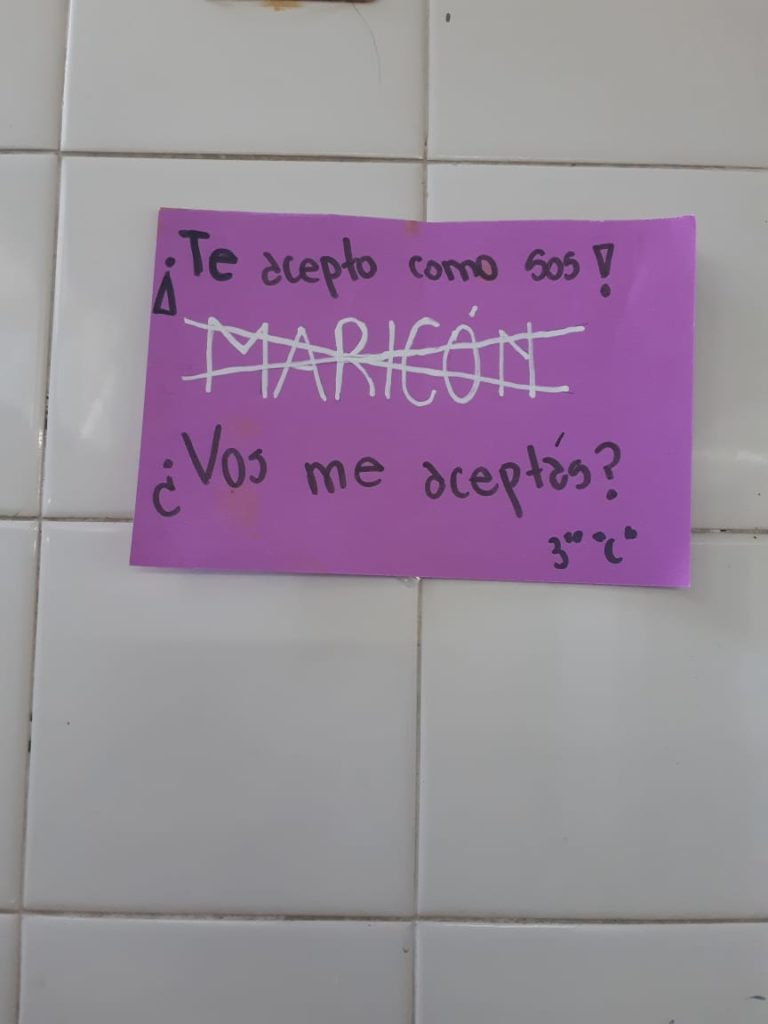 ¡Te acepto como sos!
MARICÓN
¿Vos me aceptás?
3ro "C"